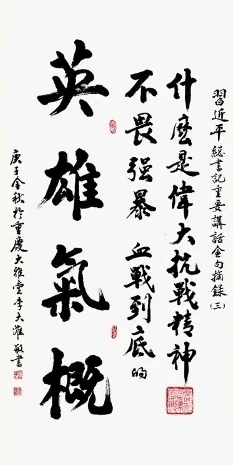 習近平總書記重要講話金句摘録(三)
什麽是偉大抗戰精神
不畏强暴 血戰到底的
英雄氣概
庚子金秋於重慶大雅堂李大淮敬書